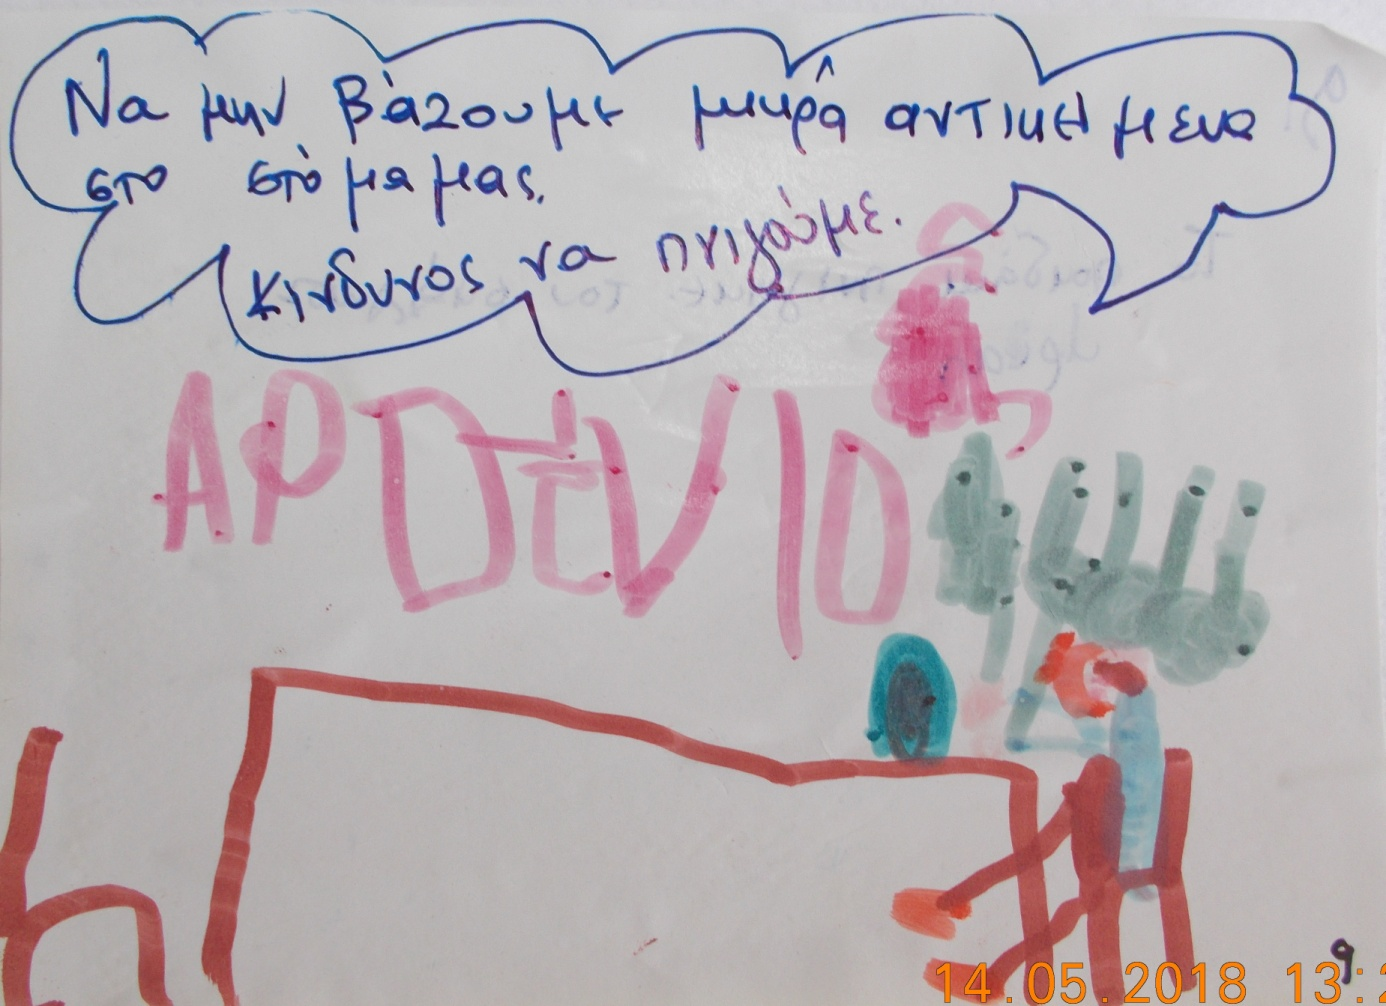 Να μην βάζουμε μικρά αντικείμενα
στο στόμα μας.
Κίνδυνος να πνιγούμε.
14.05.2018 13:2
9